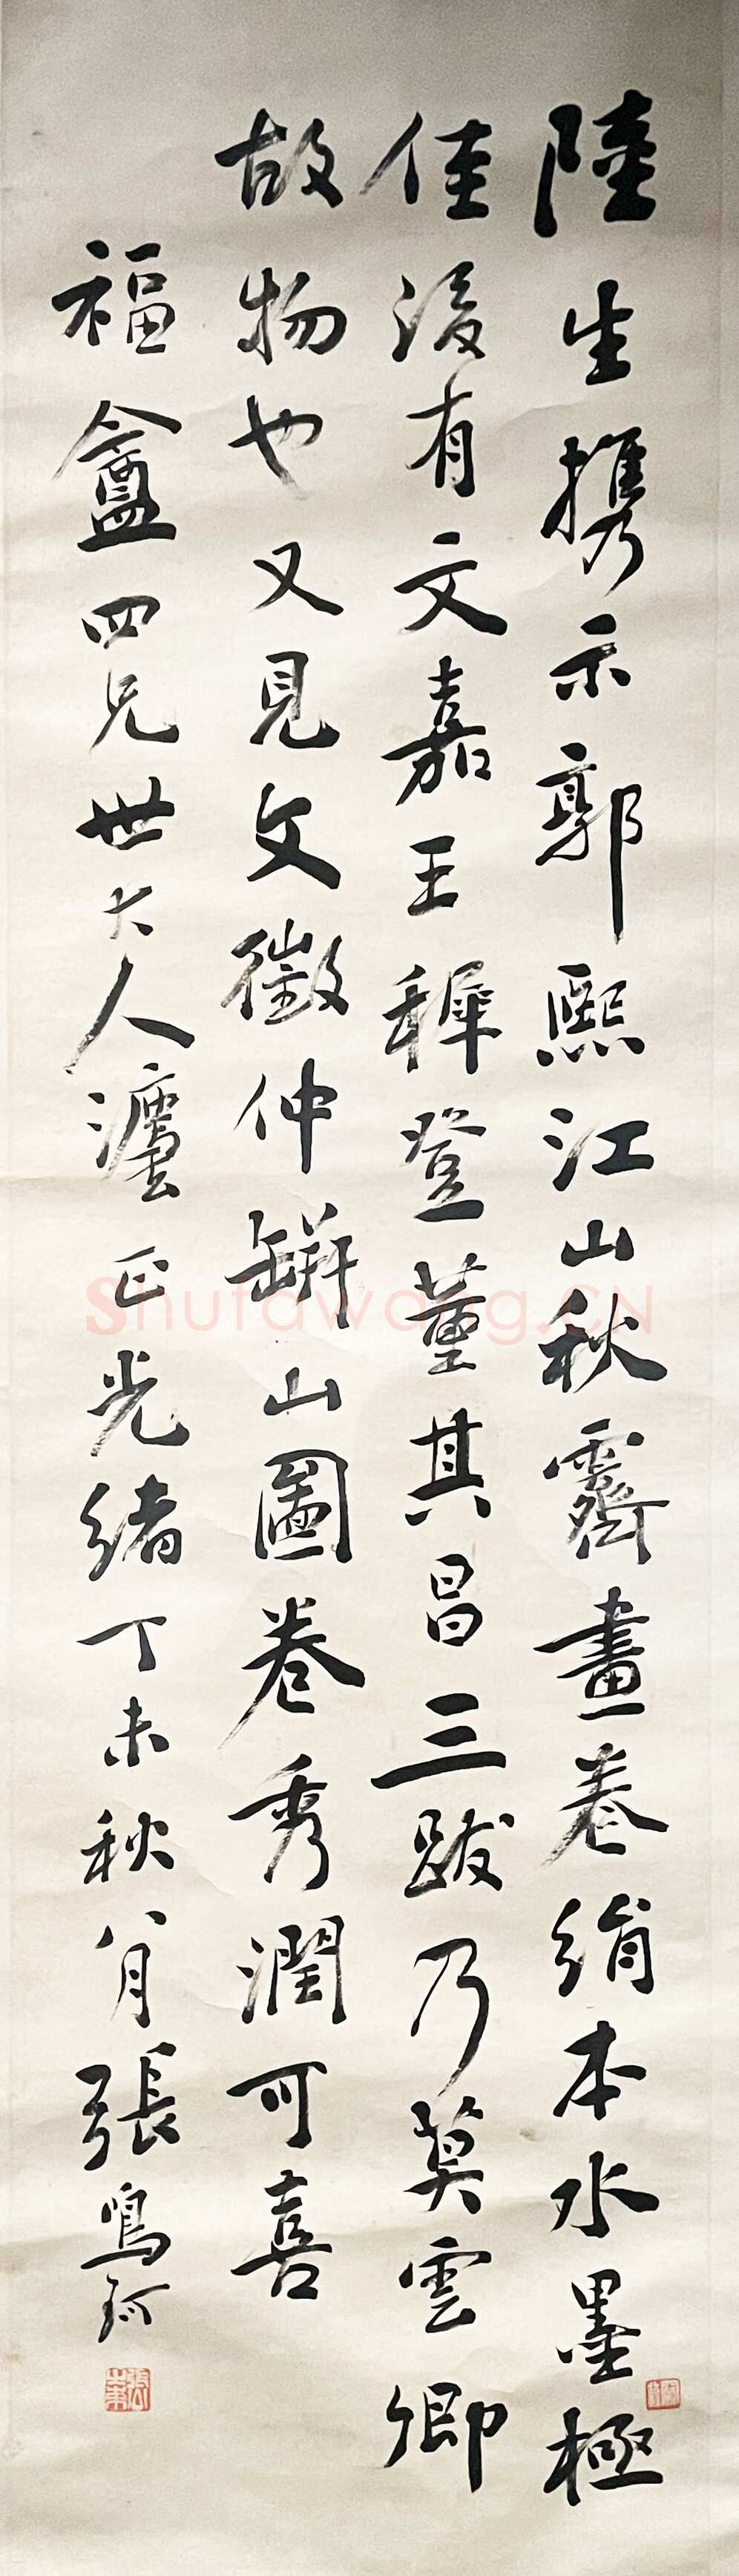 陸生携示郭熙江山秋霽畫卷絹本水墨極
佳後有文嘉王穉登董其昌三跋乃莫雲卿
故物也又見文徵仲缾山圖卷秀潤可喜
福盦四兄世大人灋正光緒丁未秋八月張鳴珂
Shufawang.CN